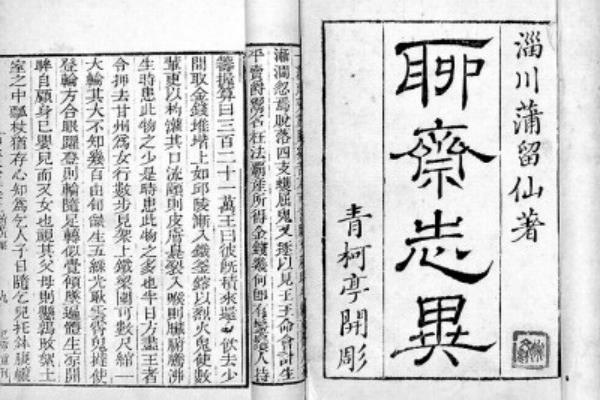 淄川蒲留仙著
聊齋志異
青柯亭開彫
潮濶忽焉脫落四支蠖屈鬼又逐以見王王命會計生
平賣爵鬻名枉法霸産所得金錢幾何卽有鬡鬚人持
籌握算曰三百二十一萬王曰彼旣積來還令飲去少
間取金錢堆堦上如邱陵漸入鐵釜鎔以烈火鬼使數
輩更以杓灌其口流頤則皮膚臭裂入喉則臟腑騰沸
生時患此物之少是時患此物之多也半日方盡王者
令押去甘州爲女行數步見架上鐵梁圍可數尺綰一
大輪其大不知幾百由旬燄生五綵光耿雲霄鬼撻使
登輪方合眼躍登則輪隨足轉似覺傾墜遍體生凉開
眸自顧身已嬰兒而又女也視其父母則懸鶉敗絮土
室之中瓢杖猶存心知爲乞人子日隨乞兒托鉢腹轆